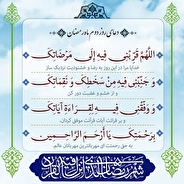 دعای روز دوم ماه رمضان
اللَّهُمَّ قَرِّبْنِي فِيهِ إِلَى مَرْضَاتِكَ
خدایا مرا در این روز به رضا و خشنودیت نزدیک ساز
وَ جَنِّبْنِي فِيهِ مِنْ سَخَطِكَ وَ نَقِمَاتِكَ
و از خشم و غضبت دور کن
وَ وَفِّقْنِي فِيهِ لِقِرَاءَةِ آيَاتِكَ
و بر قرائت آیات قرآنت موفق گردان
بِرَحْمَتِكَ يَا أَرْحَمَ الرَّاحِمِينَ
به حق رحمتت ای مهربانترین مهربانان عالم
شهر رمضان الذی انزل فیه القرآن